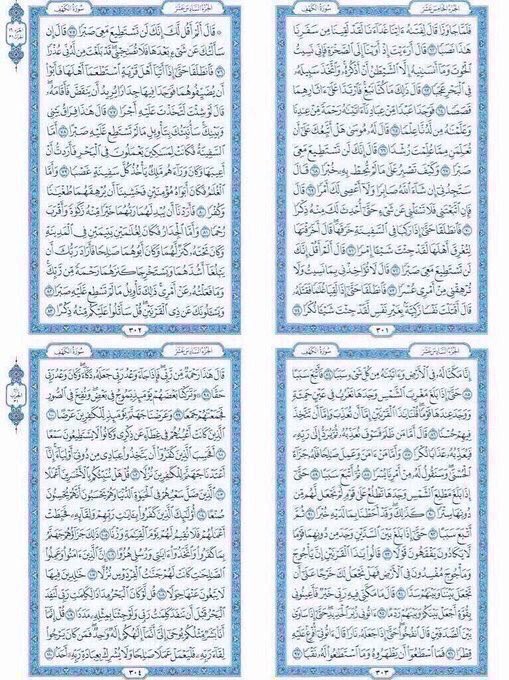 سورة الكهف
الجزء الخامس عشر
فلما جاوزا قال لفتىه ءاتنا غداءنا لقد لقينا من سفرنا
هذا نصبا ٦٢ قال أرءيت إذ أوينا إلى الصخرة فإني نسيت
الحوت وما أنسىنيه إلا الشيطن أن أذكره واتخذ سبيله
في البحر عجبا ٦٣ قال ذلك ما كنا نبغ فارتدا على ءاثارهما
قصصا ٦٤ فوجدا عبدا من عبادنا ءاتينه رحمة من عندنا
وعلمنه من لدنا علما ٦٥ قال له موسى هل أتبعك على أن
تعلمن مما علمت رشدا ٦٦ قال إنك لن تستطيع معي
صبرا ٦٧ وكيف تصبر على ما لم تحط به خبرا ٦٨ قال
ستجدني إن شاء الله صابرا ولا أعصي لك أمرا ٦٩ قال
فإن اتبعتني فلا تسءلني عن شيء حتى أحدث لك منه ذكرا
٧٠ فانطلقا حتى إذا ركبا في السفينة خرقها قال أخرقتها
لتغرق أهلها لقد جئت شيءا إمرا ٧١ قال ألم أقل إنك
لن تستطيع معي صبرا ٧٢ قال لا تؤاخذني بما نسيت ولا
ترهقني من أمري عسرا ٧٣ فانطلقا حتى إذا لقيا غلما فقتله
قال أقتلت نفسا زكية بغير نفس لقد جئت شيءا نكرا ٧٤
٣٠١
الجزء السادس عشر
سورة الكهف
قال ألم أقل لك إنك لن تستطيع معي صبرا ٧٥ قال إن
سألتك عن شيء بعدها فلا تصحبني قد بلغت من لدني عذرا
٧٦ فانطلقا حتى إذا أتيا أهل قرية استطعما أهلها فأبوا
أن يضيفوهما فوجدا فيها جدارا يريد أن ينقض فأقامه
قال لو شئت لتخذت عليه أجرا ٧٧ قال هذا فراق بيني
وبينك سأنبئك بتأويل ما لم تستطع عليه صبرا ٧٨ أما
السفينة فكانت لمسكين يعملون في البحر فأردت أن
أعيبها وكان وراءهم ملك يأخذ كل سفينة غصبا ٧٩ وأما
الغلم فكان أبواه مؤمنين فخشينا أن يرهقهما طغينا
وكفرا ٨٠ فأردنا أن يبدلهما ربهما خيرا منه زكوة وأقرب
رحما ٨١ وأما الجدار فكان لغلمين يتيمين في المدينة
وكان تحته كنز لهما وكان أبوهما صلحا فأراد ربك أن
يبلغا أشدهما ويستخرجا كنزهما رحمة من ربك
وما فعلته عن أمري ذلك تأويل ما لم تسطع عليه صبرا ٨٢
ويسءلونك عن ذي القرنين قل سأتلوا عليكم منه ذكرا ٨٣
٣٠٢
سورة الكهف
الجزء السادس عشر
إنا مكنا له في الأرض وءاتينه من كل شيء سببا ٨٤ فأتبع سببا
٨٥ حتى إذا بلغ مغرب الشمس وجدها تغرب في عين حمئة
ووجد عندها قوما قلنا يذا القرنين إما أن تعذب وإما أن تتخذ
فيهم حسنا ٨٦ قال أما من ظلم فسوف نعذبه ثم يرد إلى ربه
فيعذبه عذابا نكرا ٨٧ وأما من ءامن وعمل صلحا فله جزاء
الحسنى وسنقول له من أمرنا يسرا ٨٨ ثم أتبع سببا ٨٩ حتى
إذا بلغ مطلع الشمس وجدها تطلع على قوم لم نجعل لهم من
دونها سترا ٩٠ كذلك وقد أحطنا بما لديه خبرا ٩١ ثم
أتبع سببا ٩٢ حتى إذا بلغ بين السدين وجد من دونهما قوما
لا يكادون يفقهون قولا ٩٣ قالوا يذا القرنين إن يأجوج
ومأجوج مفسدون في الأرض فهل نجعل لك خرجا على أن
تجعل بيننا وبينهم سدا ٩٤ قال ما مكني فيه ربي خير فأعينوني
بقوة أجعل بينكم وبينهم ردما ٩٥ ءاتوني زبر الحديد حتى إذا ساوى
بين الصدفين قال انفخوا حتى إذا جعله نارا قال ءاتوني أفرغ عليه
قطرا ٩٦ فما اسطعوا أن يظهروه وما استطعوا له نقبا ٩٧
٣٠٣
الجزء السادس عشر
سورة الكهف
قال هذا رحمة من ربي فإذا جاء وعد ربي جعله دكاء وكان وعد ربي
حقا ٩٨ وتركنا بعضهم يومئذ يموج في بعض ونفخ في الصور
فجمعنهم جمعا ٩٩ وعرضنا جهنم يومئذ للكفرين عرضا ١٠٠
الذين كانت أعينهم في غطاء عن ذكري وكانوا لا يستطيعون سمعا
١٠١ أفحسب الذين كفروا أن يتخذوا عبادي من دوني أولياء إنا
أعتدنا جهنم للكفرين نزلا ١٠٢ قل هل ننبئكم بالأخسرين أعملا
١٠٣ الذين ضل سعيهم في الحيوة الدنيا وهم يحسبون أنهم يحسنون
صنعا ١٠٤ أولئك الذين كفروا بءايت ربهم ولقائه فحبطت
أعملهم فلا نقيم لهم يوم القيمة وزنا ١٠٥ ذلك جزاؤهم جهنم
بما كفروا واتخذوا ءايتي ورسلي هزوا ١٠٦ إن الذين ءامنوا وعملوا
الصلحت كانت لهم جنت الفردوس نزلا ١٠٧ خلدين فيها
لا يبغون عنها حولا ١٠٨ قل لو كان البحر مدادا لكلمت ربي لنفد
البحر قبل أن تنفد كلمت ربي ولو جئنا بمثله مددا ١٠٩ قل إنما
أنا بشر مثلكم يوحى إلي أنما إلهكم إله وحد فمن كان يرجوا
لقاء ربه فليعمل عملا صلحا ولا يشرك بعبادة ربه أحدا ١١٠
٣٠٤